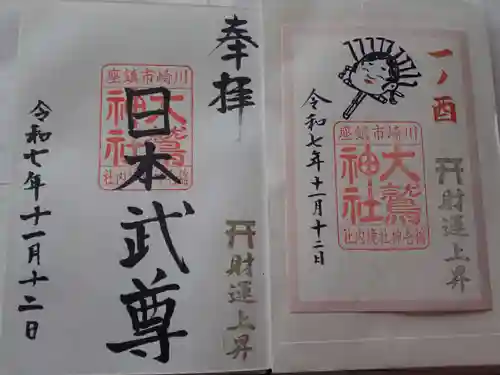 一ノ酉
川崎市鎮座
大鷲神社
稲荷神社境内社
財運上昇
令和七年十一月十二日
奉拝
川崎市鎮座
大鷲神社
日本武尊
財運上昇
令和七年十一月十二日